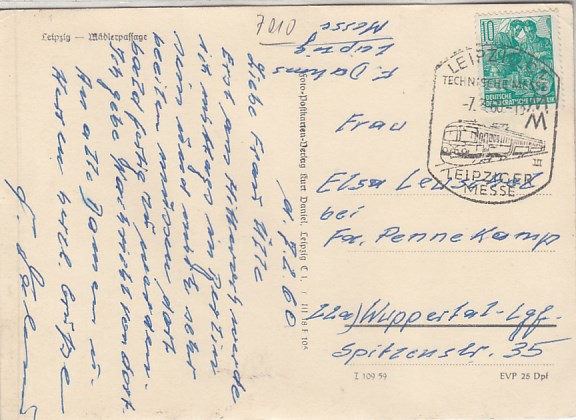 Leipzig — Mädlerpassage
7010
F. Dahms
Leipzig
Messe
d. 7.3.60
Liebe Frau
Erst am Mittwoch werde
ich mittags in Berlin
sein und muß sehr
bald fertig zu werden.
Ich gebe Nachricht von dort.
An alle Damen u.
Herren herzl. Grüße
Foto-Postkarten-Verlag Kurt Daniel, Leipzig C 1, / III 18 F 105
10
DEUTSCHE
DEMOKRATISCHE REPUBLIK
LEIPZIG
TECHNISCHE MESSE
-7.3.60
MM
III
LEIPZIGER
MESSE
Frau
Elsa
bei
Fa. Pennekamp
22a) Wuppertal-Lgf.
Spitzenstr. 35
I 109 59
EVP 25 Dpf